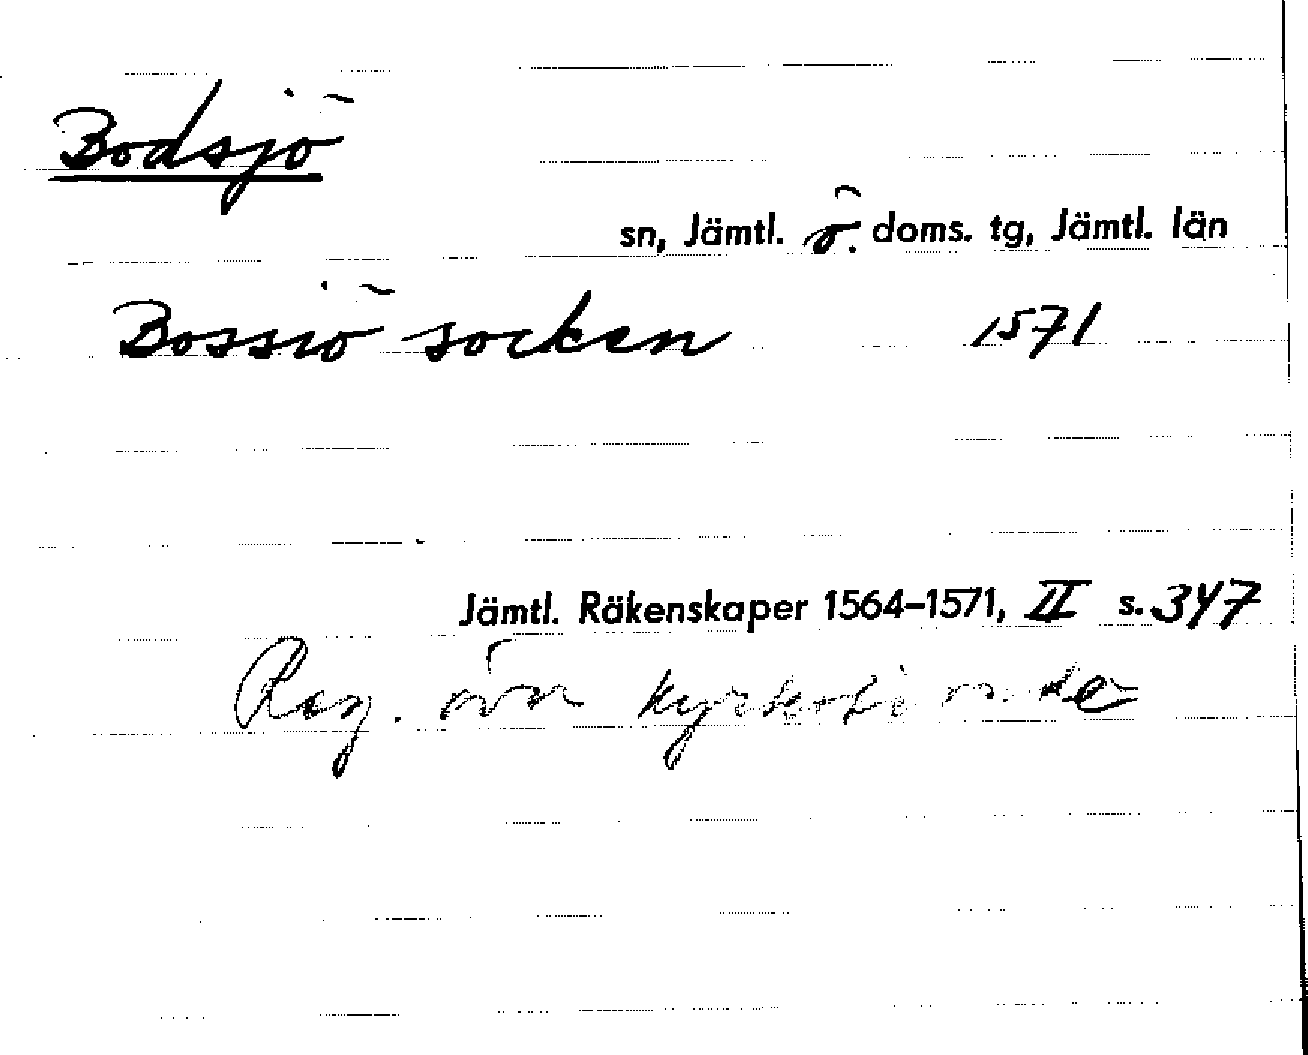 Bodsjö
sn, Jämtl. ö. doms. tg, Jämtl. län
Bossiö socken 1571
Jämtl. Räkenskaper 1564-1571, II s. 347
Reg. över kyrkotionde